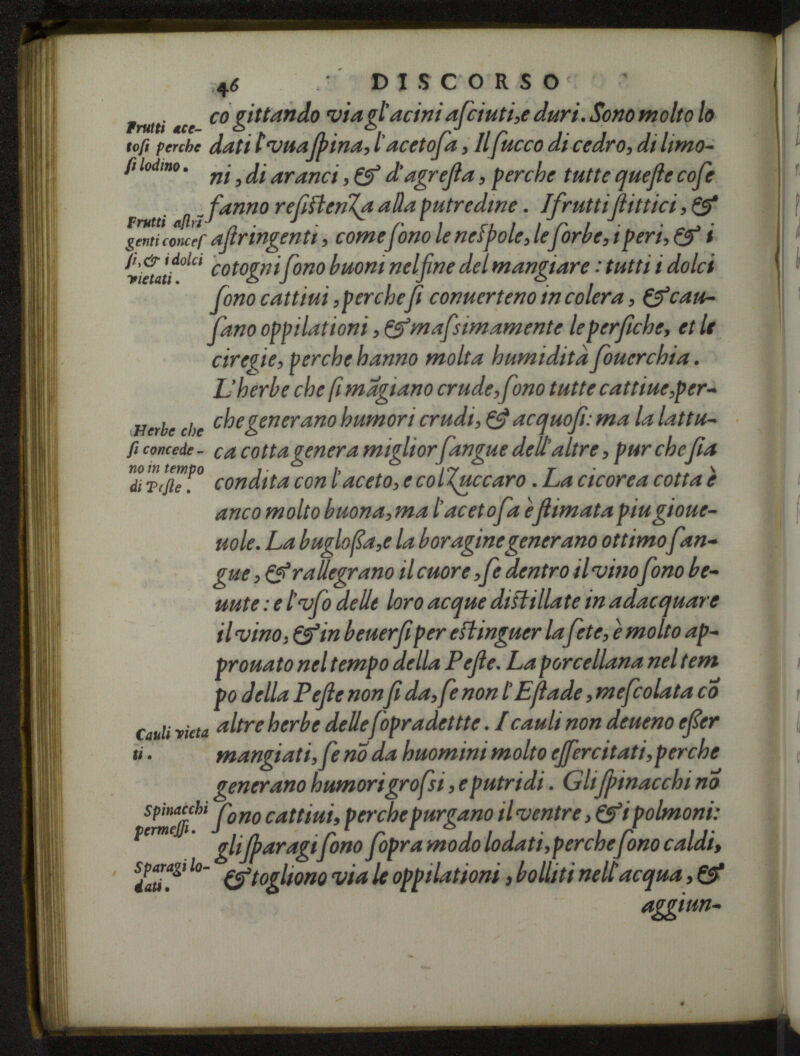 46 DISCORSO
co gittando via gl'acini asciuti,e duri. Sono molto lo
dati l'vua spina, l'acetosa, Il succo di cedro, di limo-
ni, di aranci, & d'agresta, perche tutte queste cose
fanno resistenza alla putredine. I frutti stittici, &
astringenti, come sono le nespole, le sorbe, i peri, & i
cotogni sono buoni nel fine del mangiare: tutti i dolci
sono cattiui, perche si conuerteno in colera, & cau-
sano oppilationi, & massimamente le persiche, et le
ciregie, perche hanno molta humidità souerchia.
L'herbe che si māgiano crude, sono tutte cattiue,per-
che generano humori crudi, & acquosi: ma la lattu-
ca cotta genera miglior sangue dell'altre, pur che sia
condita con l'aceto, e col zuccaro. La cicorea cotta è
anco molto buona, ma l'acetosa è stimata piu gioue-
uole. La buglossa,e la boragine generano ottimo san-
gue, & rallegrano il cuore, se dentro il vino sono be-
uute: e l'vso delle loro acque distillate in adacquare
il vino, & in beuersi per estinguer la sete, è molto ap-
prouato nel tempo della Peste. La porcellana nel tem
po della Peste non si da, se non l'Estade, mescolata cō
altre herbe delle sopradettte. I cauli non deueno esser
mangiati, se nō da huomini molto essercitati, perche
generano humori grossi, e putridi. Gli spinacchi nō
sono cattiui, perche purgano il ventre, & i polmoni:
gli sparagi sono sopra modo lodati, perche sono caldi,
& togliono via le oppilationi, bolliti nell'acqua, &
aggiun-
Frutti ace-
tosi perche
si lodino.
Frutti astrī
genti conces
si, & i dolci
vietati.
Herbe che
si concede-
no in tempo
di Peste.
Cauli vieta
ti.
Spinacchi
permessi.
Sparagi lo-
dati.